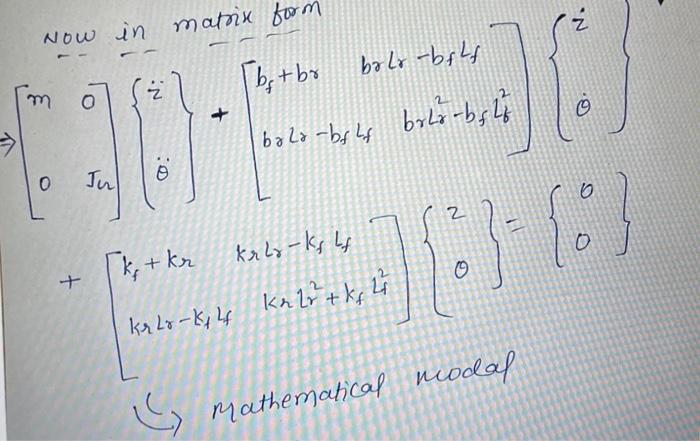 Now in matrix form
⇒ [m 0; 0 Jn] {z̈; θ̈} + [b_f + b_r   b_r L_r - b_f L_f; b_r L_r - b_f L_f   b_r L_r² - b_f L_f²] {ż; θ̇}
+ [k_f + k_r   k_r L_r - k_f L_f; k_r L_r - k_f L_f   k_r L_r² + k_f L_f²] {z; θ} = {0; 0}
↳ Mathematical modal